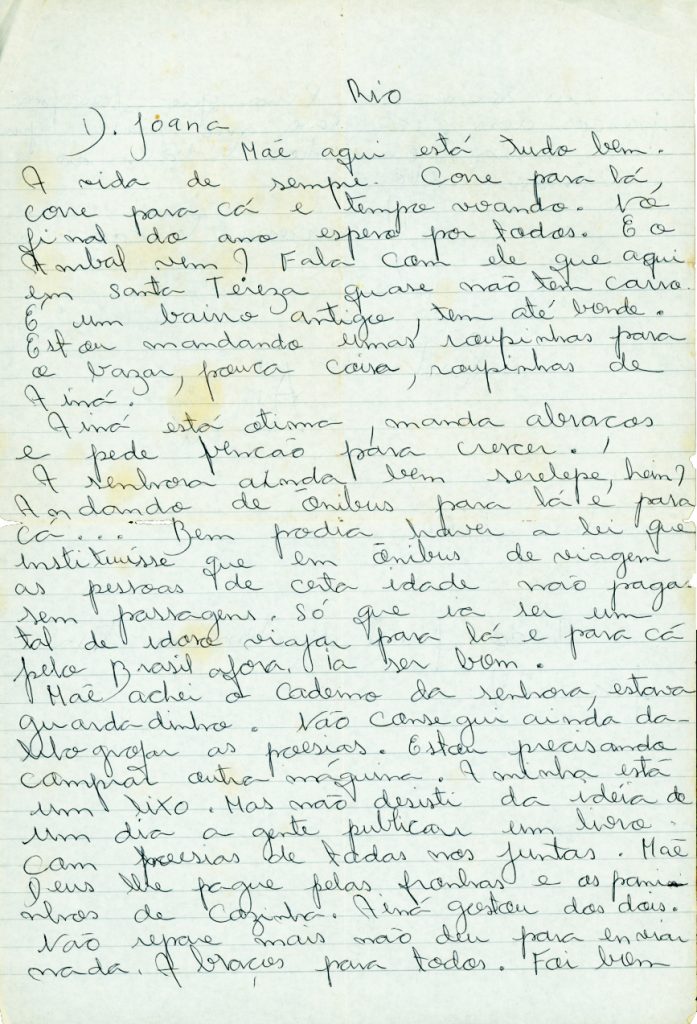 Rio
D. Joana
Mãe aqui está tudo bem.
A vida de sempre. Corre para lá,
corre para cá e tempo voando. No
final do ano espero por todos. E o
Anibal vem? Fala com ele que aqui
em Santa Tereza quase não tem carro.
É um bairro antigo, tem até bonde.
Estou mandando umas roupinhas para
o bazar, pouca coisa, roupinhas de
Ainá.
Ainá está otima, manda abraços
e pede benção para crescer.
A senhora ainda bem serelepe, hein?
Andando de ônibus para lá e para
cá... Bem podia haver a lei que
instituisse que em ônibus de viagem
as pessoas de certa idade não paga-
sem passagens. Só que ia ser um
tal de idoso viajar para lá e para cá
pelo Brasil afora. Ia ser bom.
Mãe achei o caderno da senhora, estava
guardadinho. Não consegui ainda da-
tilografar as poesias. Estou precisando
comprar outra máquina. A minha está
um lixo. Mas não desisti da ideia de
um dia a gente publicar um livro.
com poesias de todas nos juntas. Mãe
Deus lhe pague pelas fronhas e os pani-
nhos de cozinha. Ainá gostou dos dois.
Não repare mais não deu para enviar
nada. Abraços para todos. Foi bom